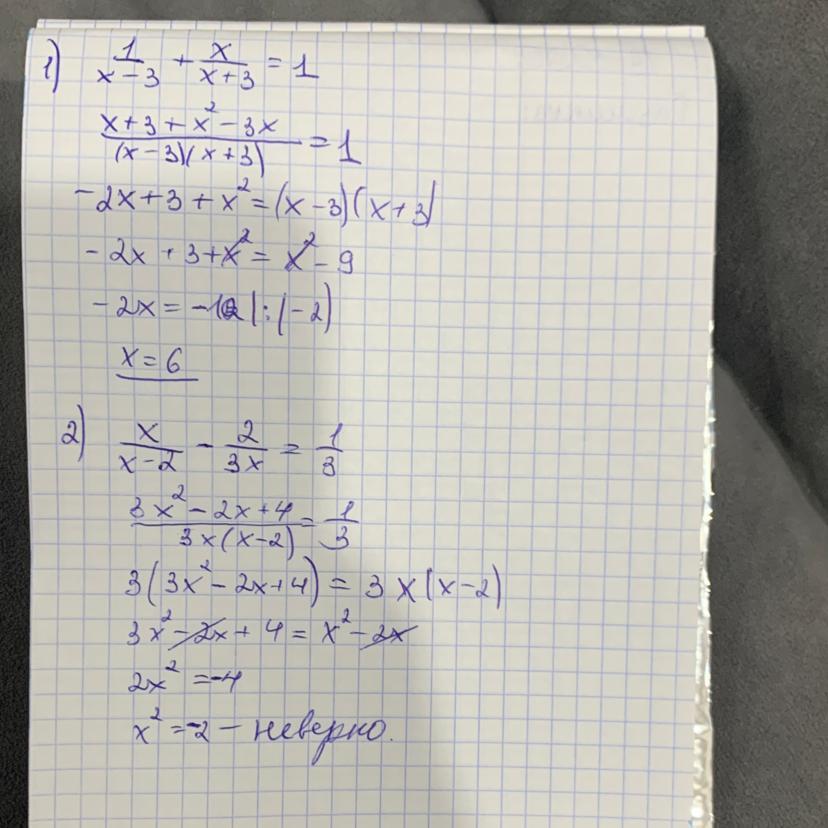 1) 1/(x-3) + x/(x+3) = 1
(x+3+x²-3x)/((x-3)(x+3)) = 1
-2x+3+x² = (x-3)(x+3)
-2x+3+x² = x²-9
-2x = -12 |:(-2)
x=6
2) x/(x-2) - 2/(3x) = 1/3
(3x²-2x+4)/(3x(x-2)) = 1/3
3(3x²-2x+4) = 3x(x-2)
3x²-2x+4 = x²-2x
2x² = -4
x² = -2 - неверно.